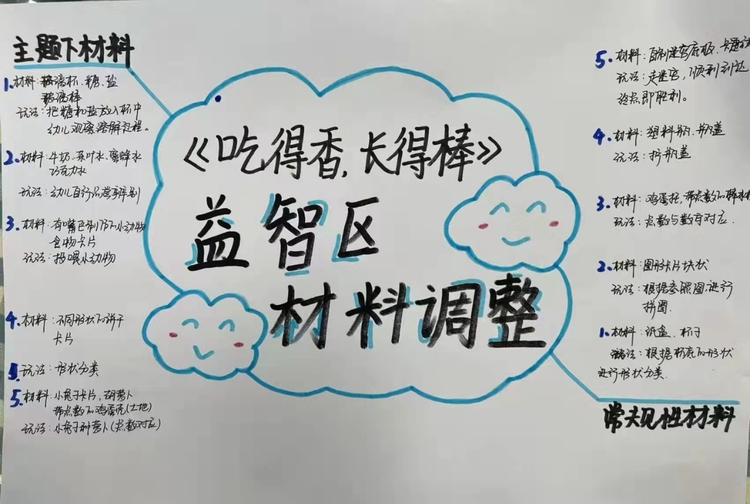 主题下材料
1.材料:玻璃杯、糖、盐
玻璃棒
玩法:把糖和盐放入杯中
幼儿观察溶解过程。
2.材料:牛奶、茶叶水、蜜蜂水
巧克力水
玩法:幼儿自行品尝辨别
3.材料:有嘴巴的小动物
食物卡片
玩法:投喂小动物
4.材料:不同形状的饼干
卡片
玩法:形状分类
5.材料:小兔子卡片、胡萝卜
带点数的鸡蛋托(土地)
玩法:小兔子种萝卜(点数对应)
《吃得香,长得棒》
益智区
材料调整
5.材料:自制迷宫底板、卡通
玩法:走迷宫,顺利到达
终点即胜利。
4.材料:塑料瓶、瓶盖
玩法:拧瓶盖
3.材料:鸡蛋托,带点数的
玩法:点数与数字对应
2.材料:图形卡片块状
玩法:根据参照图进行
拼图
1.材料:纸盒、杯子
玩法:根据杯底的形状
进行形状分类
常规性材料